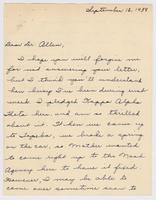 September 18, 1938
Dear Dr. Allen,
I hope you will forgive me
for not answering your letter,
but I think you'll understand
how busy I've been during rush
week. I pledged Kappa Alpha
Theta here, and am so thrilled
about it. When we came up
to Topeka, we broke a spring
on the car, so Mother wanted
to come right up to the Nash
Agency here to have it fixed.
However, I may be able to
come over sometime soon to